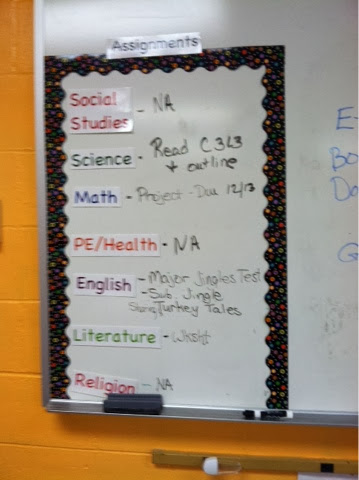 Assignments
Social Studies - NA
Science - Read C3L3
+ outline
Math - Project - Due 12/13
PE/Health - NA
English - Major Jingles Test
- Sub Jingle
Turkey Tales
Literature - Wksht
Religion - NA
E
Bo
Do
G